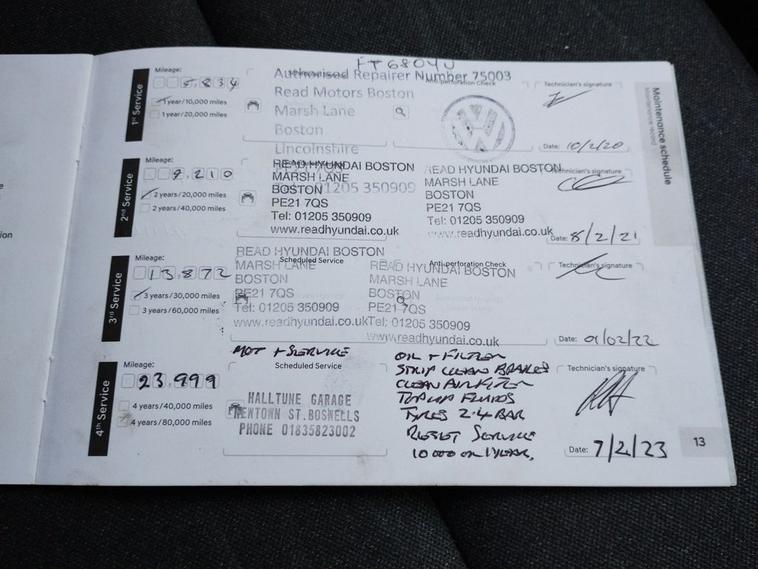 FT68OYU
Maintenance schedule
Maintenance record
1st Service
Mileage:
5,834
1 year/10,000 miles
1 year/20,000 miles
Authorised Repairer Number 75003
Read Motors Boston
Marsh Lane
Boston
Lincolnshire
01205 350909
Anti-perforation Check
Technician's signature
Date: 10/2/20
2nd Service
Mileage:
9,210
2 years/20,000 miles
2 years/40,000 miles
READ HYUNDAI BOSTON
MARSH LANE
BOSTON
PE21 7QS
Tel: 01205 350909
www.readhyundai.co.uk
READ HYUNDAI BOSTON
MARSH LANE
BOSTON
PE21 7QS
Tel: 01205 350909
www.readhyundai.co.uk
Technician's signature
Date: 8/2/21
3rd Service
Mileage:
13,872
3 years/30,000 miles
3 years/60,000 miles
Scheduled Service
READ HYUNDAI BOSTON
MARSH LANE
BOSTON
PE21 7QS
Tel: 01205 350909
www.readhyundai.co.uk
Anti-perforation Check
READ HYUNDAI BOSTON
MARSH LANE
BOSTON
PE21 7QS
Tel: 01205 350909
www.readhyundai.co.uk
Technician's signature
Date: 01/02/22
4th Service
Mileage:
23,999
4 years/40,000 miles
4 years/80,000 miles
MOT + SERVICE
Scheduled Service
HALLTUNE GARAGE
ST.BOSWELLS
PHONE 01835823002
OIL + FILTER
STRIP CLEAN BRAKES
CLEAN AIR FILTER
TOP UP FLUIDS
TYRES 2.4 BAR
RESET SERVICE
10000 OR 1 YEAR.
Technician's signature
Date: 7/2/23
13